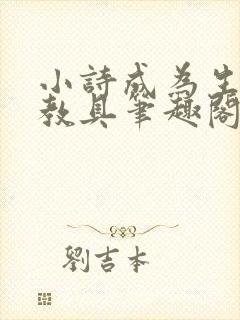 小詩成為生
教具筆趣閣
劉吉本